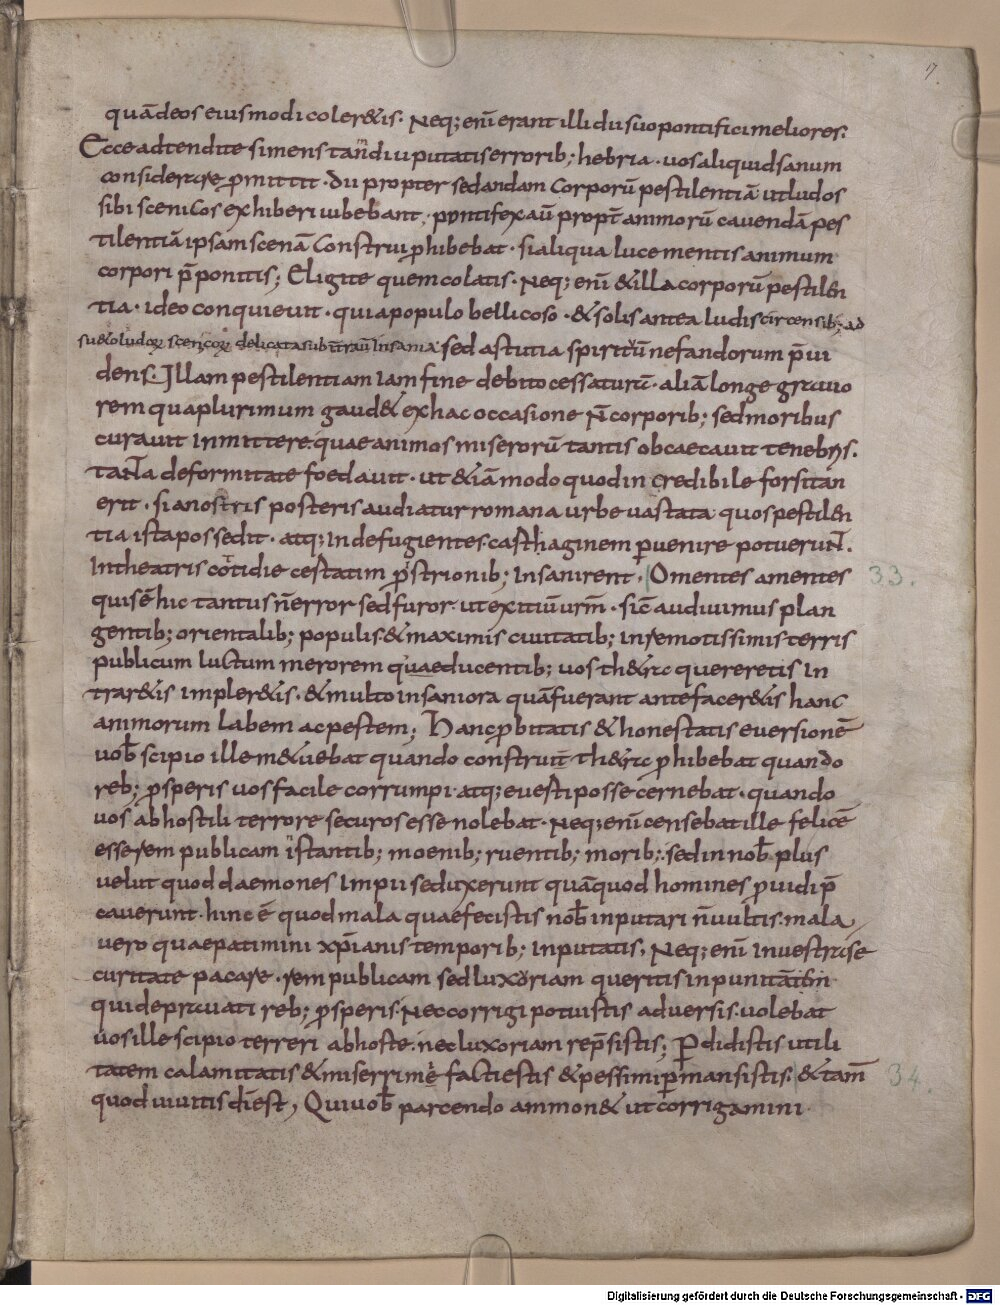 17
quā deos eiusmodi coler&is. Neq; eni erant illi dii suo pontifici meliores:
Ecce adtendite si mens tandiu putatis errorib; hebria. uos aliquid sanum
considerare pmittit. Dii propter sedandam corporū pestilentiā ut ludos
sibi scenicos exhiberi iubebant, pontifex aū propt animorū cauendā pes
tilentiā ipsam scenā construi phibebat. si aliqua luce mentis animum
corpori pponitis; Eligite quem colatis. Neq; eni & illa corporū pestilen
tia. ideo conquieuit. quia populo bellicoso. & solis antea ludis circensib; ad
su&o ludoꝝ scenicoꝝ delicata subintrauit insania. sed astutia spirituū nefandorum p̄ui
dens. Illam pestilentiam iam fine debito cessaturū. aliā longe grauio
rem qua plurimum gaud& ex hac occasione n̄ corporib; sed moribus
curauit inmittere. quae animos miserorū tantis obcaecauit tenebris.
tanta deformitate foedauit. ut &iā modo quod incredibile forsitan
erit. si a nostris posteris audiatur romana urbe uastata quos pestilen
tia ista possedit. atq; inde fugientes carthaginem puenire potuerunt.
In theatris cotidie certatim p strionib; insanirent. O mentes amentes 33.
quis ē hic tantus n̄ error sed furor ut exitiū urm̄. sic audiuimus plan
gentib; orientalib; populis & maximis ciuitatib; in remotissimis terris
publicum luctum meroremquae ducentib; uos th&ra quereretis in
trar&is impler&is. & multo insaniora quā fuerant ante facer&is hanc
animorum labem ac pestem; Hanc pbitatis & honestatis euersionē
uob̄ scipio ille m&uebat quando construi th&ra phibebat quando
reb; psperis uos facile corrumpi atq; euerti posse cernebat. quando
uos ab hostili terrore securos esse nolebat. Neq; eni censebat ille felicē
esse rem publicam stantib; moenib; ruentib; morib;. sed in nob̄ plus
uelut quod daemones impii seduxerunt quā quod homines puidi p̄
cauerunt. hinc ē quod mala quae fecistis nob̄ inputari n̄ uultis. mala
uero quae patimini xp̄ianis temporib; inputatis. Neq; eni in uestra se
curitate pacare rem publicam sed luxoriam queritis inpunitā
qui deprauati reb; psperis. Nec corrigi potuistis aduersis. uolebat
uos ille scipio terreri ab hoste. nec luxoriam rep̄sistis; Pdidistis utili
tatem calamitatis & miserrimi facti estis & pessimi pmansistis. & tam̄ 34.
quod uiuitis di est, Qui uob̄ parcendo ammon& ut corrigamini.
Digitalisierung gefördert durch die Deutsche Forschungsgemeinschaft - DFG